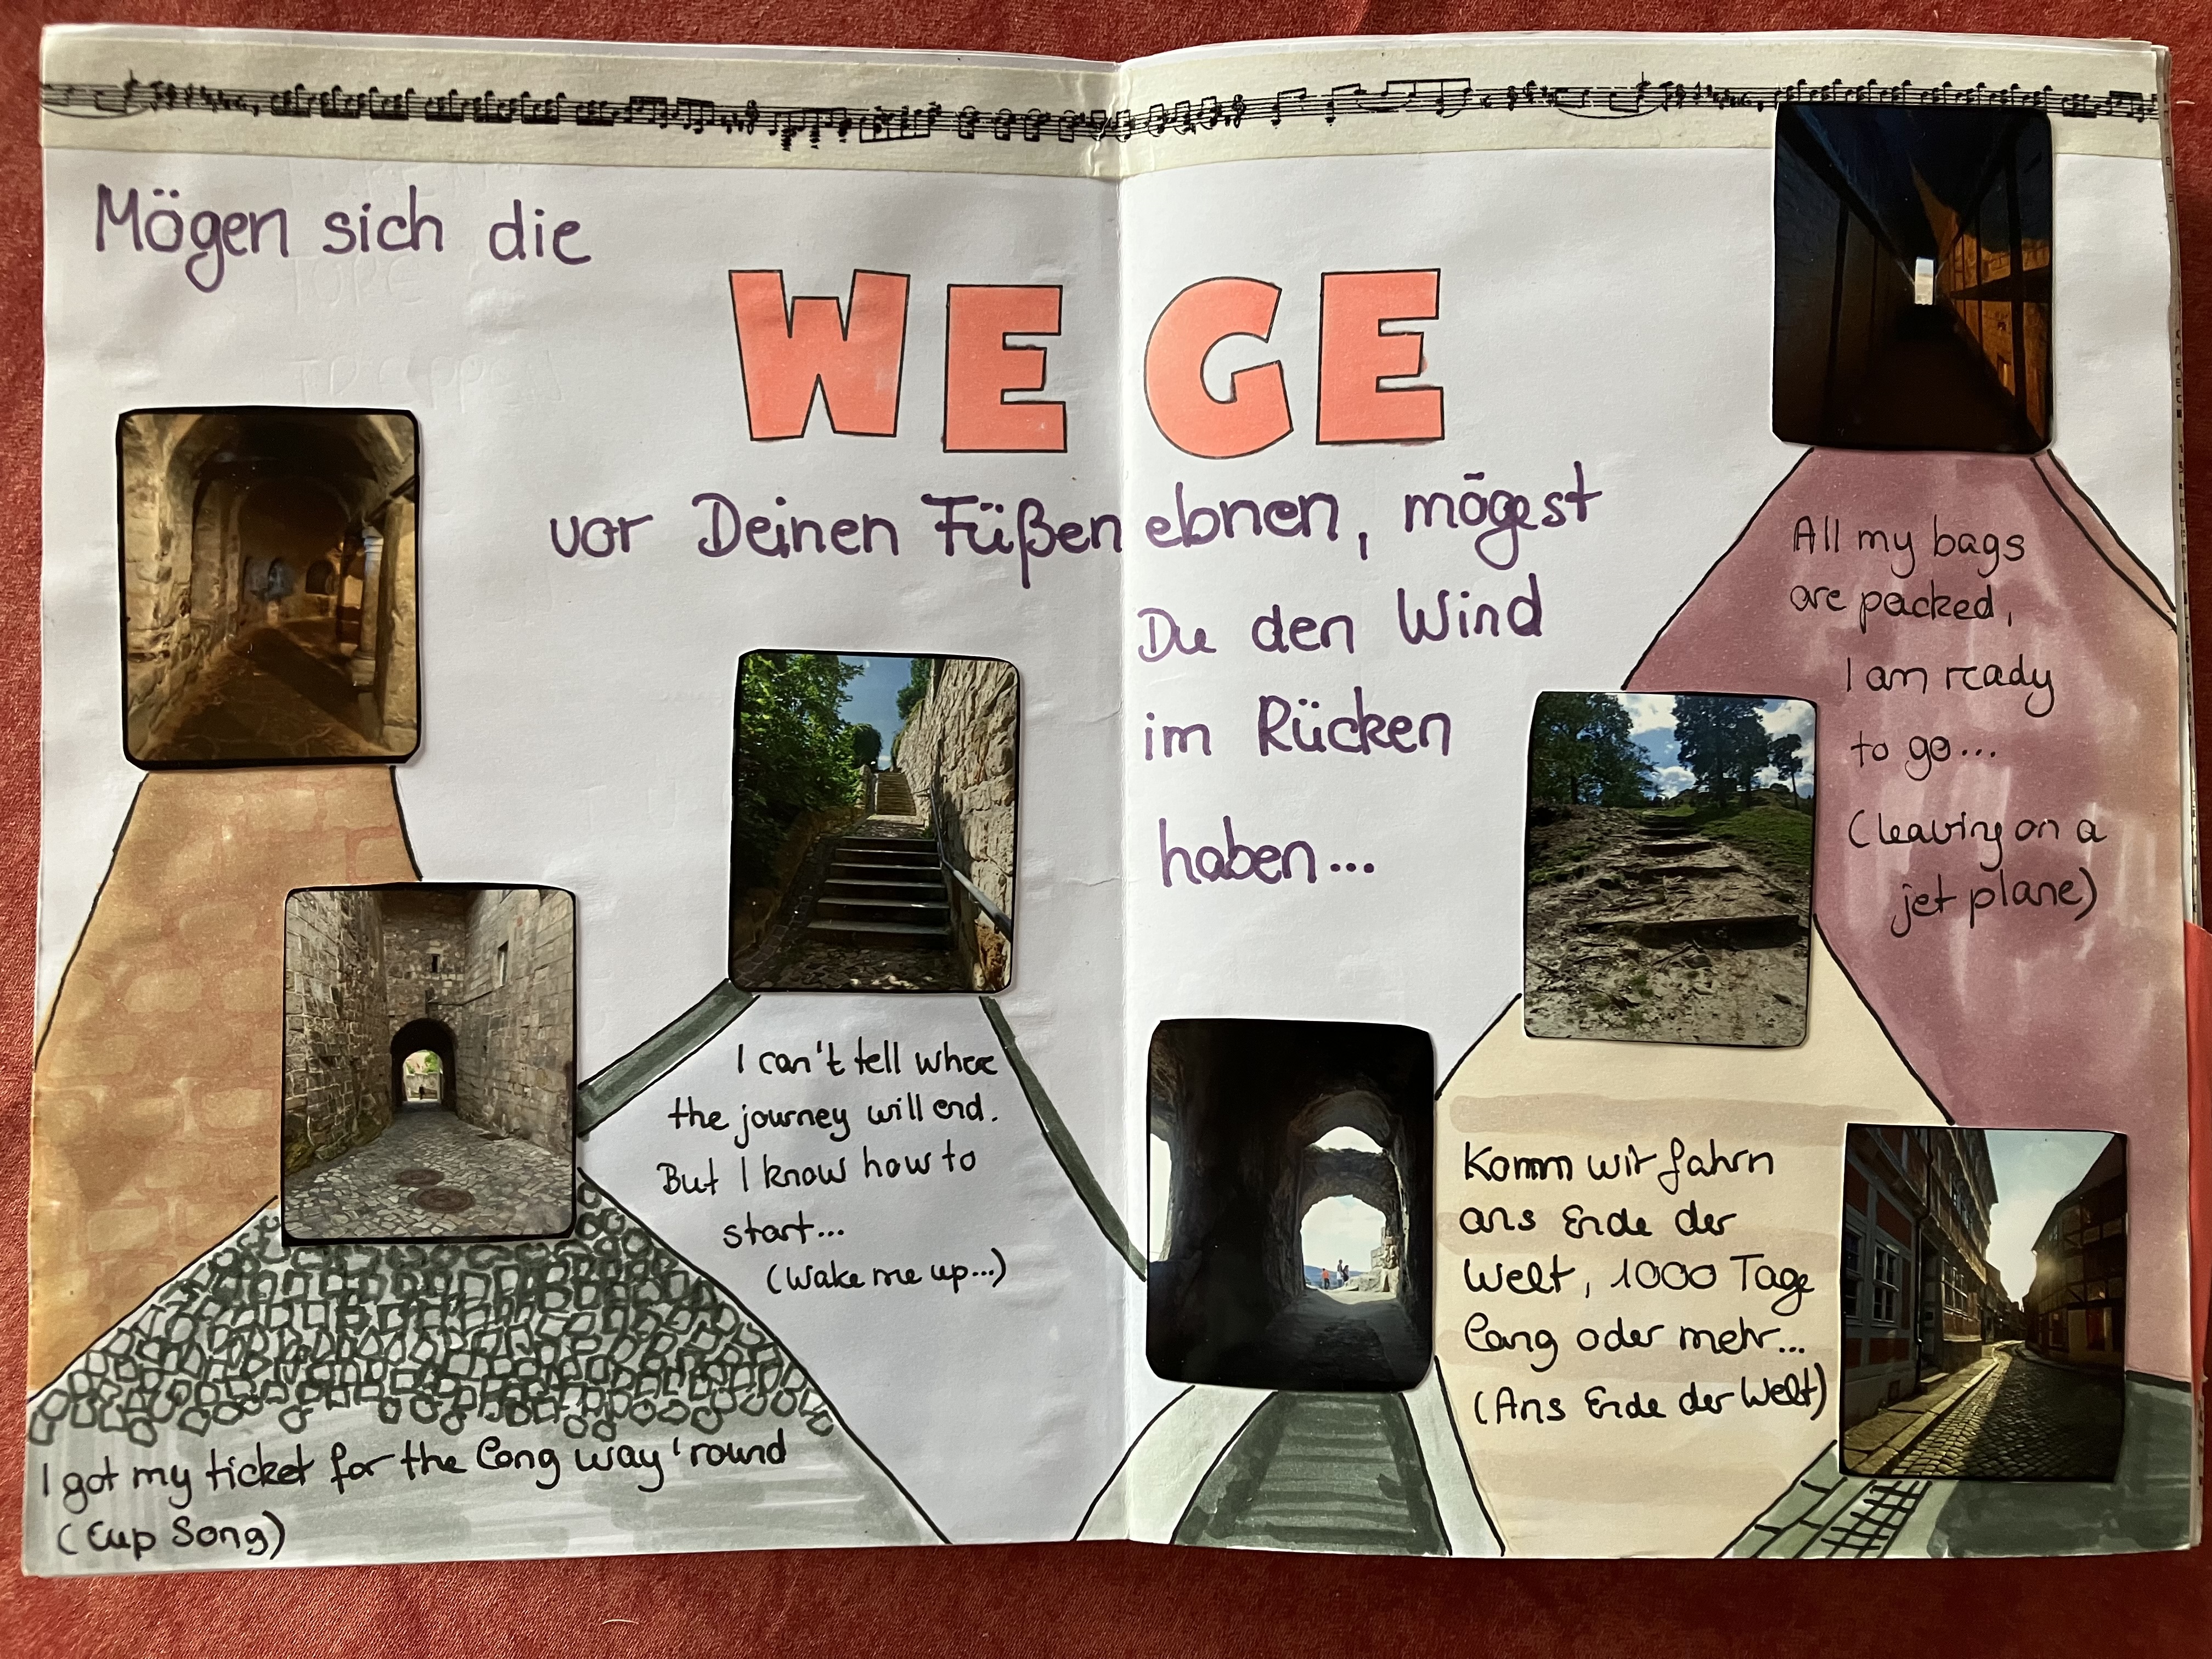 Mögen sich die
WEGE
vor Deinen Füßen ebnen, mögest
Du den Wind
im Rücken
haben...
I can't tell where
the journey will end.
But I know how to
start...
(Wake me up...)
I got my ticket for the long way 'round
(Cup Song)
All my bags
are packed,
I am ready
to go...
(leaving on a
jet plane)
Komm wir fahrn
ans Ende der
Welt, 1000 Tage
lang oder mehr...
(Ans Ende der Welt)